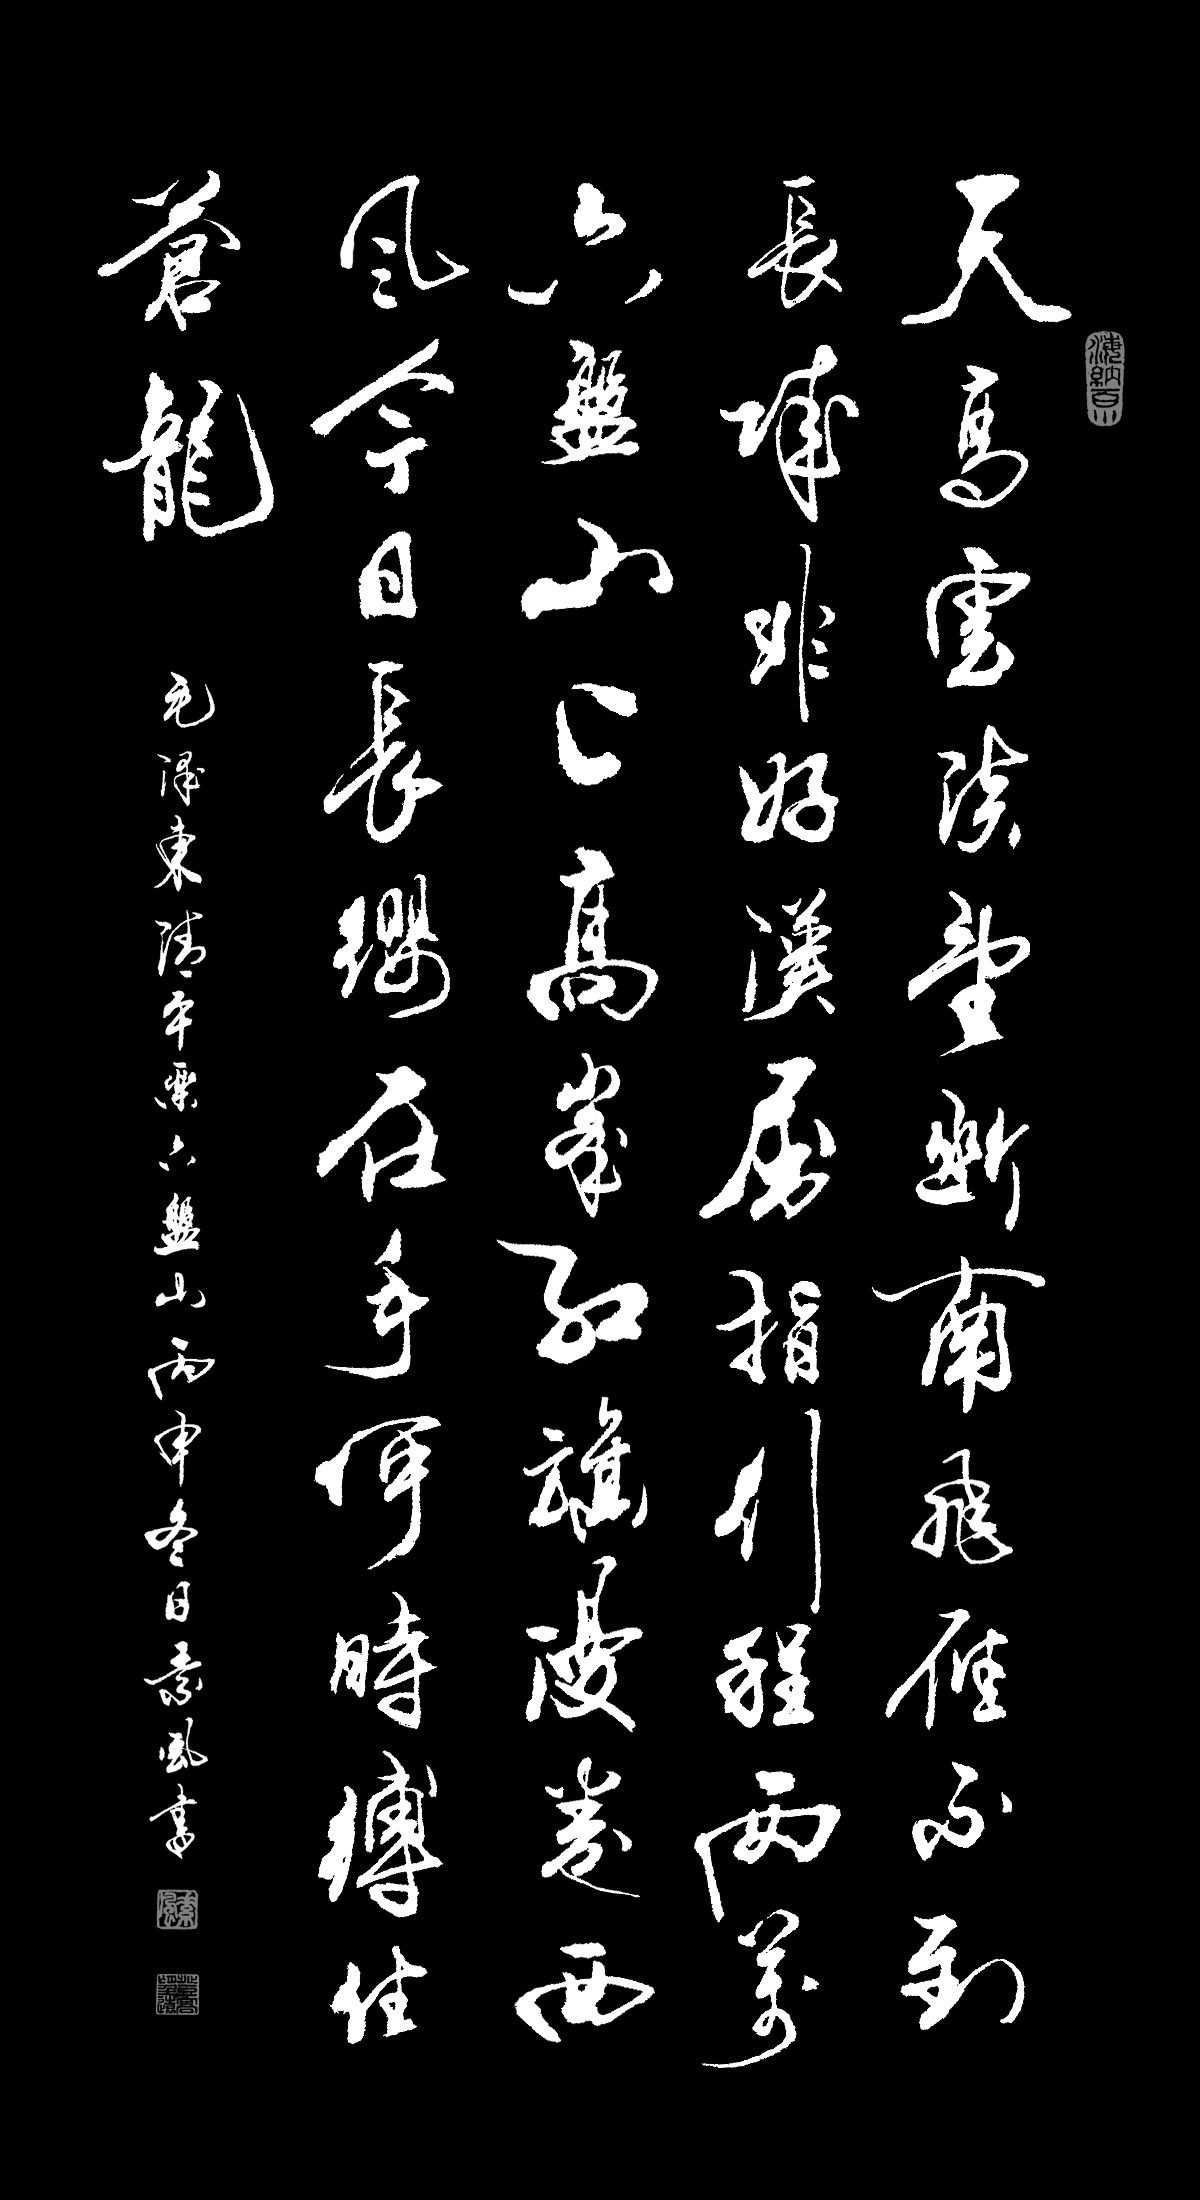 天高雲淡望斷南飛雁不到
長城非好漢屈指行程兩萬
六盤山上高峯紅旗漫卷西
風今日長纓在手何時縛住
蒼龍
毛澤東清平樂六盤山丙申冬日素風書
海納百川